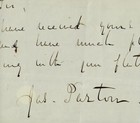 have received your
and have much pl
ing with you
Jas. Parton